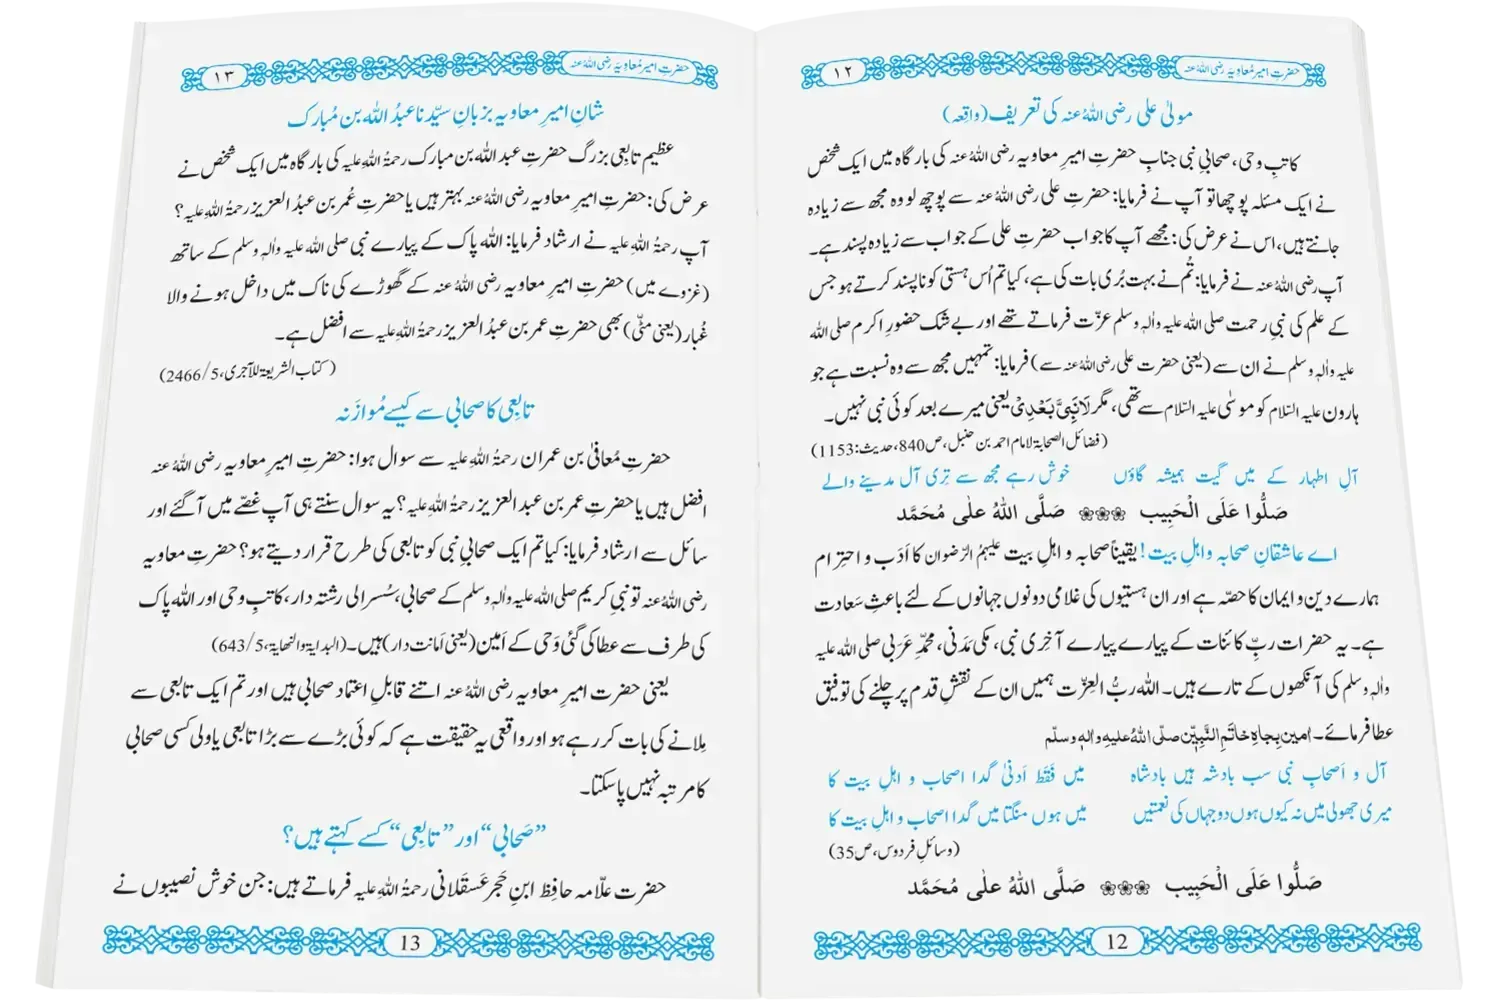 حضرتِ امیر مُعاوِیَہ رضی اللهُ عنہ
۱۲
مولیٰ علی رضی اللهُ عنہ کی تعریف (واقِعہ)
کاتبِ وحی، صحابیِ نبی جنابِ حضرتِ امیرِ معاویہ رضی اللهُ عنہ کی بارگاہ میں ایک شخص
نے ایک مسئلہ پوچھا تو آپ نے فرمایا: حضرتِ علی رضی اللهُ عنہ سے پوچھ لو وہ مجھ سے زیادہ
جانتے ہیں، اس نے عرض کی: مجھے آپ کا جواب حضرتِ علی کے جواب سے زیادہ پسند ہے۔
آپ رضی اللهُ عنہ نے فرمایا: تُم نے بہت بُری بات کی ہے، کیا تم اُس ہستی کو ناپسند کرتے ہو جس
کے علم کی نبیِ رحمت صلی اللهُ علیہ واٰلہٖ وسلم عزّت فرماتے تھے اور بے شک حضورِ اکرم صلی اللهُ
علیہ واٰلہٖ وسلم نے ان سے (یعنی حضرت علی رضی اللهُ عنہ سے) فرمایا: تمہیں مجھ سے وہ نسبت ہے جو
ہارون علیہ السّلام کو موسیٰ علیہ السّلام سے تھی، مگر لَا نَبِیَّ بَعْدِیْ یعنی میرے بعد کوئی نبی نہیں۔
(فضائل الصحابۃ لامام احمد بن حنبل، ص840، حدیث: 1153)
آلِ اطہار کے میں گیت ہمیشہ گاؤں خوش رہے مجھ سے تِری آل مدینے والے
صَلُّوا عَلَی الْحَبِیب ❀❀❀ صَلَّی اللهُ علٰی مُحَمَّد
اے عاشقانِ صحابہ و اہلِ بیت! یقیناً صحابہ و اہلِ بیت علیہمُ الرّضوان کا اَدَب و احترام
ہمارے دین و ایمان کا حصّہ ہے اور ان ہستیوں کی غلامی دونوں جہانوں کے لئے باعثِ سَعادت
ہے۔ یہ حضرات ربِّ کائنات کے پیارے پیارے آخری نبی، مکی مَدَنی، محمّدِ عَرَبی صلی اللهُ علیہ
واٰلہٖ وسلم کی آنکھوں کے تارے ہیں۔ الله ربُّ العِزّت ہمیں ان کے نقشِ قدم پر چلنے کی توفیق
عطا فرمائے۔ اٰمین بِجاہِ خاتَمِ النَّبِیّٖن صلّی اللهُ علیهِ واٰلهٖ وسلّم
آل و اَصحابِ نبی سب بادشہ ہیں بادشاہ میں فَقَط اَدنیٰ گدا اصحاب و اہلِ بیت کا
میری جھولی میں نہ کیوں ہوں دو جہاں کی نعمتیں میں ہوں منگتا میں گدا اصحاب و اہلِ بیت کا
(وسائلِ فردوس، ص35)
صَلُّوا عَلَی الْحَبِیب ❀❀❀ صَلَّی اللهُ علٰی مُحَمَّد
12
حضرتِ امیر مُعاوِیَہ رضی اللهُ عنہ
۱۳
شانِ امیرِ معاویہ بزبانِ سیّدنا عبدُ الله بن مُبارک
عظیم تابِعی بزرگ حضرتِ عبد الله بن مبارک رحمۃُ اللهِ علیہ کی بارگاہ میں ایک شخص نے
عرض کی: حضرتِ امیرِ معاویہ رضی اللهُ عنہ بہتر ہیں یا حضرتِ عُمر بن عبدُ العزیز رحمۃُ اللهِ علیہ؟
آپ رحمۃُ اللهِ علیہ نے ارشاد فرمایا: الله پاک کے پیارے نبی صلی اللهُ علیہ واٰلہٖ وسلم کے ساتھ
(غزوے میں) حضرتِ امیرِ معاویہ رضی اللهُ عنہ کے گھوڑے کی ناک میں داخل ہونے والا
غُبار (یعنی مٹّی) بھی حضرتِ عمر بن عبدُ العزیز رحمۃُ اللهِ علیہ سے افضل ہے۔
(کتاب الشریعۃ للآجری، 5/2466)
تابِعی کا صحابی سے کیسے مُوازَنہ
حضرتِ مُعافیٰ بن عمران رحمۃُ اللهِ علیہ سے سوال ہوا: حضرتِ امیرِ معاویہ رضی اللهُ عنہ
افضل ہیں یا حضرتِ عمر بن عبد العزیز رحمۃُ اللهِ علیہ؟ یہ سوال سنتے ہی آپ غصّے میں آگئے اور
سائل سے ارشاد فرمایا: کیا تم ایک صحابیِ نبی کو تابعی کی طرح قرار دیتے ہو؟ حضرتِ معاویہ
رضی اللهُ عنہ تو نبیِ کریم صلی اللهُ علیہ واٰلہٖ وسلم کے صحابی، سُسرالی رشتہ دار، کاتبِ وحی اور الله پاک
کی طرف سے عطا کی گئی وَحی کے اَمین (یعنی اَمانت دار) ہیں۔ (البدایۃ والنھایۃ، 5/643)
یعنی حضرتِ امیرِ معاویہ رضی اللهُ عنہ اتنے قابلِ اعتماد صحابی ہیں اور تم ایک تابعی سے
مِلانے کی بات کر رہے ہو اور واقعی یہ حقیقت ہے کہ کوئی بڑے سے بڑا تابعی یا ولی کسی صحابی
کا مرتبہ نہیں پا سکتا۔
”صَحابی“ اور ”تابِعی“ کسے کہتے ہیں؟
حضرت علّامہ حافِظ ابنِ حَجَر عَسقَلانی رحمۃُ اللهِ علیہ فرماتے ہیں: جن خوش نصیبوں نے
13